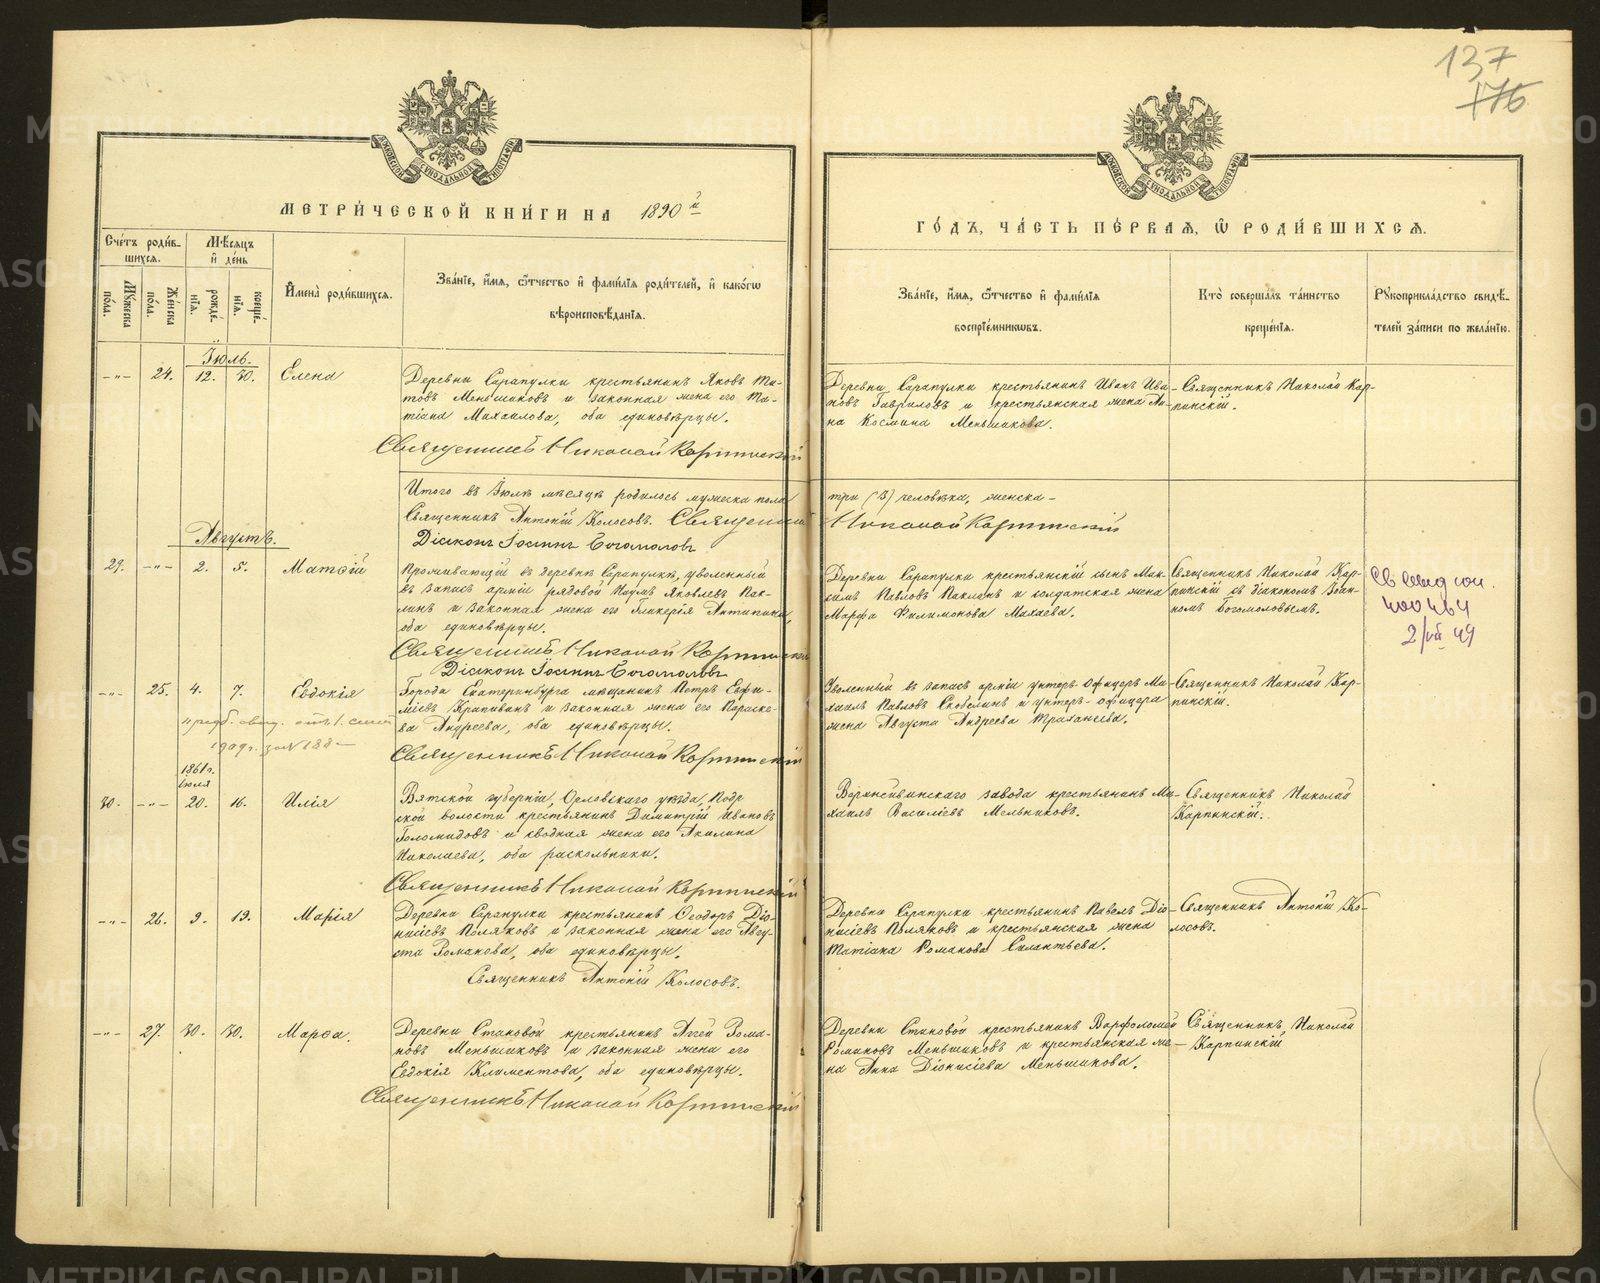 137
176
МЕТРИ́ЧЕСКОЙ КНИ́ГИ НА 1890 й
ГО́ДЪ, ЧА́СТЬ ПЕ́РВАЯ, Ѿ РОДИ́ВШИХСЯ.
Сче́тъ роди́в-
шихся.
Мѣ́сяцъ
и҆ де́нь
Мꙋжеска
пола.
Же́нска
пола.
рожде́-
нїѧ.
креще́-
нїѧ.
И҆мена̀ роди́вшихсѧ.
Зва́нїе, и҆́мѧ, ѻ҆́тчество и҆ фами́лїѧ роди́телей, и҆ како́гѡ
вѣроисповѣ́данїѧ.
Зва́нїе, и҆́мѧ, ѻ҆́тчество и҆ фами́лїѧ
воспрїе́мникѡвъ.
Кто̀ соверша́лъ та́инство
креще́нїѧ.
Рꙋкоприкла́дство свидѣ́-
телей за́писи по жела́нїю.
Іюль.
-"- 24. 12. 30. Елена
Деревни Сарапулки крестьянинъ Яковъ Ти-
товъ Меньшиковъ и законная жена его Та-
тіана Михаилова, оба единовѣрцы.
Священникъ Николай Карпинскій
Деревни Сарапулки крестьянинъ Иванъ Ива-
новъ Гавриловъ и крестьянская жена Ан-
на Космина Меньшикова.
Священникъ Николай Кар-
пинскій.
Итого въ Іюлѣ мѣсяцѣ родилось мужеска пола
три (3) человѣка, женска -
Священникъ Антоній Колосовъ. Священникъ
Николай Карпинскій
Діаконъ Іоаннъ Богомоловъ
Августъ.
29. -"- 2. 5. Матѳій
Проживающій въ деревнѣ Сарапулкѣ, уволенный
въ запасъ арміи рядовой Наумъ Яковлевъ Пак-
линъ и законная жена его Гликерія Антипина,
оба единовѣрцы.
Священникъ Николай Карпинскій
Діаконъ Іоаннъ Богомоловъ
Деревни Сарапулки крестьянскій сынъ Мак-
симъ Павловъ Паклинъ и солдатская жена
Марфа Филимонова Махаева.
Священникъ Николай Кар-
пинскій съ діакономъ Іоан-
номъ Богомоловымъ.
400464
2/VII 49
-"- 25. 4. 7. Евдокія
Города Екатеринбурга мѣщанинъ Петръ Евфи-
міевъ Крапивинъ и законная жена его Параске-
ва Андреева, оба единовѣрцы.
Священникъ Николай Карпинскій
1909г. за № 188-
Уволенный въ запасъ арміи унтеръ-офицеръ Ми-
хаилъ Павловъ Скобелинъ и унтеръ-офицера
жена Августа Андреева Траханеева.
Священникъ Николай Кар-
пинскій.
1861г.
іюля
30. -"- 20. 16. Илія
Вятской губерніи, Орловскаго уѣзда, Подр
ской волости крестьянинъ Димитрій Ивановъ
Голомидовъ и сводная жена его Акилина
Николаева, оба раскольники.
Священникъ Николай Карпинскій
Верхнейвинскаго завода крестьянинъ Ми-
хаилъ Василіевъ Мельниковъ.
Священникъ Николай
Карпинскій.
-"- 26. 9. 19. Марія
Деревни Сарапулки крестьянинъ Ѳеодоръ Діо-
нисіевъ Поляковъ и законная жена его Авгу-
ста Романова, оба единовѣрцы.
Священникъ Антоній Колосовъ.
Деревни Сарапулки крестьянинъ Павелъ Діо-
нисіевъ Поляковъ и крестьянская жена
Татіана Романова Силантьева.
Священникъ Антоній Ко-
лосовъ.
-"- 27. 30. 30. Марѳа.
Деревни Становой крестьянинъ Аггей Рома-
новъ Меньшиковъ и законная жена его
Евдокія Климентова, оба единовѣрцы.
Священникъ Николай Карпинскій
Деревни Становой крестьянинъ Варфоломей
Романовъ Меньшиковъ и крестьянская же-
на Анна Діонисіева Меньшикова.
Священникъ Николай
Карпинскій
METRIKI.GASO-URAL.RU